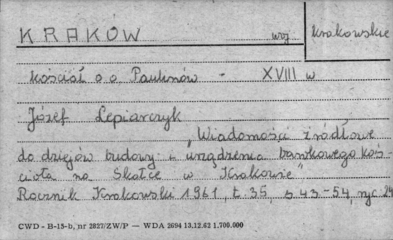 KRAKÓW woj. krakowskie
kościół o o Paulinów - XVIII w
Józef Lepiarczyk
„Wiadomości źródłowe
do dziejów budowy i urządzenia barokowego koś-
cioła na Skałce w Krakowie"
Rocznik Krakowski 1961, t. 35, s 43-54, ryc. 24
CWD - B-15-b, nr 2827/ZW/P — WDA 2694 13.12.62 1.700.000